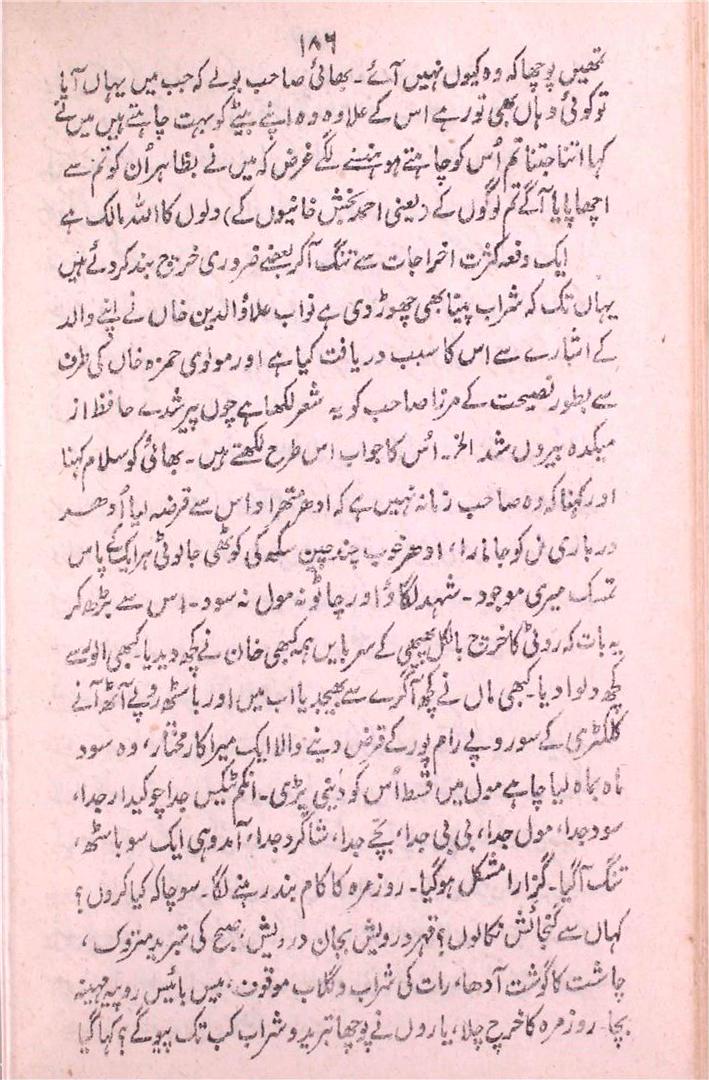 ۱۸۶
تمھیں پوچھا کہ وہ کیوں نہیں آئے۔ بھائی صاحب بولے کہ جب میں یہاں آیا
تو کوئی وہاں بھی تو رہے اس کے علاوہ وہ اپنے بیٹے کو بہت چاہتے ہیں میں نے
کہا اتنا جتنا تم اُس کو چاہتے ہو ہنسنے لگے غرض کہ میں نے بظاہر اُن کو تم سے
اچھا پایا آگے تم لوگوں کے (یعنی احمد بخش خانیوں کے) دلوں کا اللہ مالک ہے
ایک دفعہ کثرت اخراجات سے تنگ آکر بعضے ضروری خرچ بند کردئے ہیں
یہاں تک کہ شراب پینا بھی چھوڑ دی ہے نواب علاؤالدین خاں نے اپنے والد
کے اشارے سے اس کا سبب دریافت کیا ہے اور مولوی حمزہ خاں کی طرف
سے بطور نصیحت کے مرزا صاحب کو یہ شعر لکھا ہے چوں پیر شدے حافظ از
میکدہ بیروں شد الخ۔ اُس کا جواب اس طرح لکھتے ہیں۔ بھائی کو سلام کہنا
اور کہنا کہ وہ صاحب زمانہ نہیں ہے کہ ادھر متھرا داس سے قرضہ لیا اُدھر
درباری مل کو جا مارا، ادھر خوب چند چین سکھ کی کوٹھی جا لوٹی ہر ایک کے پاس
تمسک میری موجود۔ شہد لگاؤ اور چاٹو نہ مول نہ سود۔ اس سے بڑھ کر
یہ بات کہ روٹی کا خرچ بالکل پھپھی کے سر بایں ہمہ کبھی خان نے کچھ دیدیا۔ کبھی الور سے
کچھ دلوا دیا کبھی ماں نے کچھ آگرے سے بھیجدیا اب میں اور باسٹھ روپے آٹھ آنے
کلکٹری کے سو روپے رام پور کے قرض دینے والا ایک میرا کار مختار، وہ سود
ماہ بماہ لیا چاہے مول میں قسط اُس کو دینی پڑی۔ انکم ٹیکس جدا چوکیدار جدا،
سود جدا، مول جدا، بی بی جدا، بچے جدا، شاگرد جدا، آمد وہی ایک سو باسٹھ،
تنگ آگیا۔ گزارا مشکل ہوگیا۔ روزمرہ کا کام بند رہنے لگا۔ سوچا کہ کیا کروں؟
کہاں سے گنجائش نکالوں؟ قہر درویش بجان درویش، صبح کی تبرید متروک،
چاشت کا گوشت آدھا، رات کی شراب و گلاب موقوف، بیس بائیس روپیہ مہینہ
بچا۔ روزمرہ کا خرچ چلا، یاروں نے پوچھا تبرید و شراب کب تک نہ پیو گے؟ کہا گیا